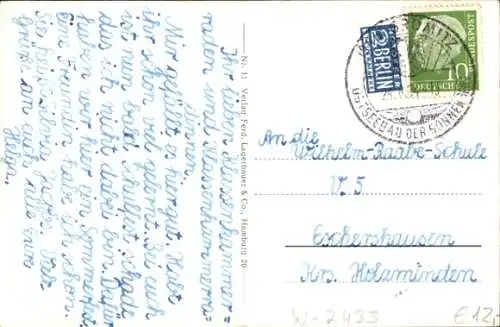 Ihr lieben Klassenkammer=
raden und Klassenkammera=
dinnen.
Mir gefällt es hier gut. Habt
ihr schon viel gelernt. Bei euch
ist nun bald Schulfest, schade
das ich nicht dabei bin. Dafür
haben wir hier ein Sommerfest.
Eine Freundin habe ich schon.
Sie heißt
Grüße an euch alle eure
Helga.
Nr. 11 Verlag Ferd. Lagerbauer & Co., Hamburg 26
NOTOPFER
2 BERLIN
STEUERMARKE
DEUTSCHE BUNDESPOST
10
OSTSEEBAD DER SONNENSEITE
An die
Wilhelm-Raabe-Schule
V. 5
Eschershausen
Krs. Holzminden
W-2433
€12,-